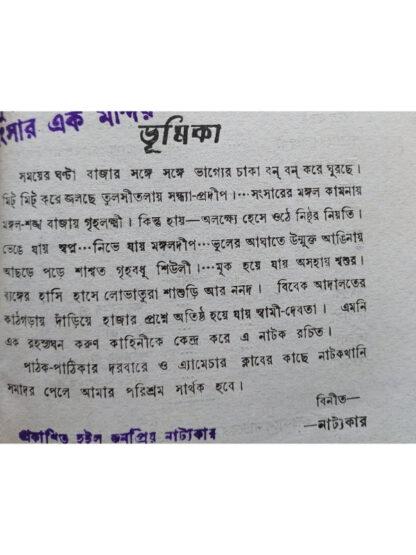 সংসার এক মন্দির
ভূমিকা
সময়ের ঘণ্টা বাজার সঙ্গে সঙ্গে ভাগ্যের চাকা বন্ বন্ করে ঘুরছে।
মিট্ মিট্ করে জ্বলছে তুলসীতলায় সন্ধ্যা-প্রদীপ।···সংসারের মঙ্গল কামনায়
মঙ্গল-শঙ্খ বাজায় গৃহলক্ষ্মী। কিন্তু হায়—অলক্ষ্যে হেসে ওঠে নিষ্ঠুর নিয়তি।
ভেঙে যায় স্বপ্ন···নিভে যায় মঙ্গলদীপ···ভুলের আঘাতে উন্মুক্ত আঙিনায়
আছড়ে পড়ে শাশ্বত গৃহবধূ শিউলী।···মূক হয়ে যায় অসহায় শ্বশুর।
ব্যঙ্গের হাসি হাসে লোভাতুরা শাশুড়ি আর ননদ। বিবেক আদালতের
কাঠগড়ায় দাঁড়িয়ে হাজার প্রশ্নে অতিষ্ঠ হয়ে যায় স্বামী-দেবতা। এমনি
এক রহস্যঘন করুণ কাহিনীকে কেন্দ্র করে এ নাটক রচিত।
পাঠক-পাঠিকার দরবারে ও এ্যামেচার ক্লাবের কাছে নাটকখানি
সমাদর পেলে আমার পরিশ্রম সার্থক হবে।
বিনীত—
—নাট্যকার
প্রকাশিত হইল জনপ্রিয় নাট্যকার